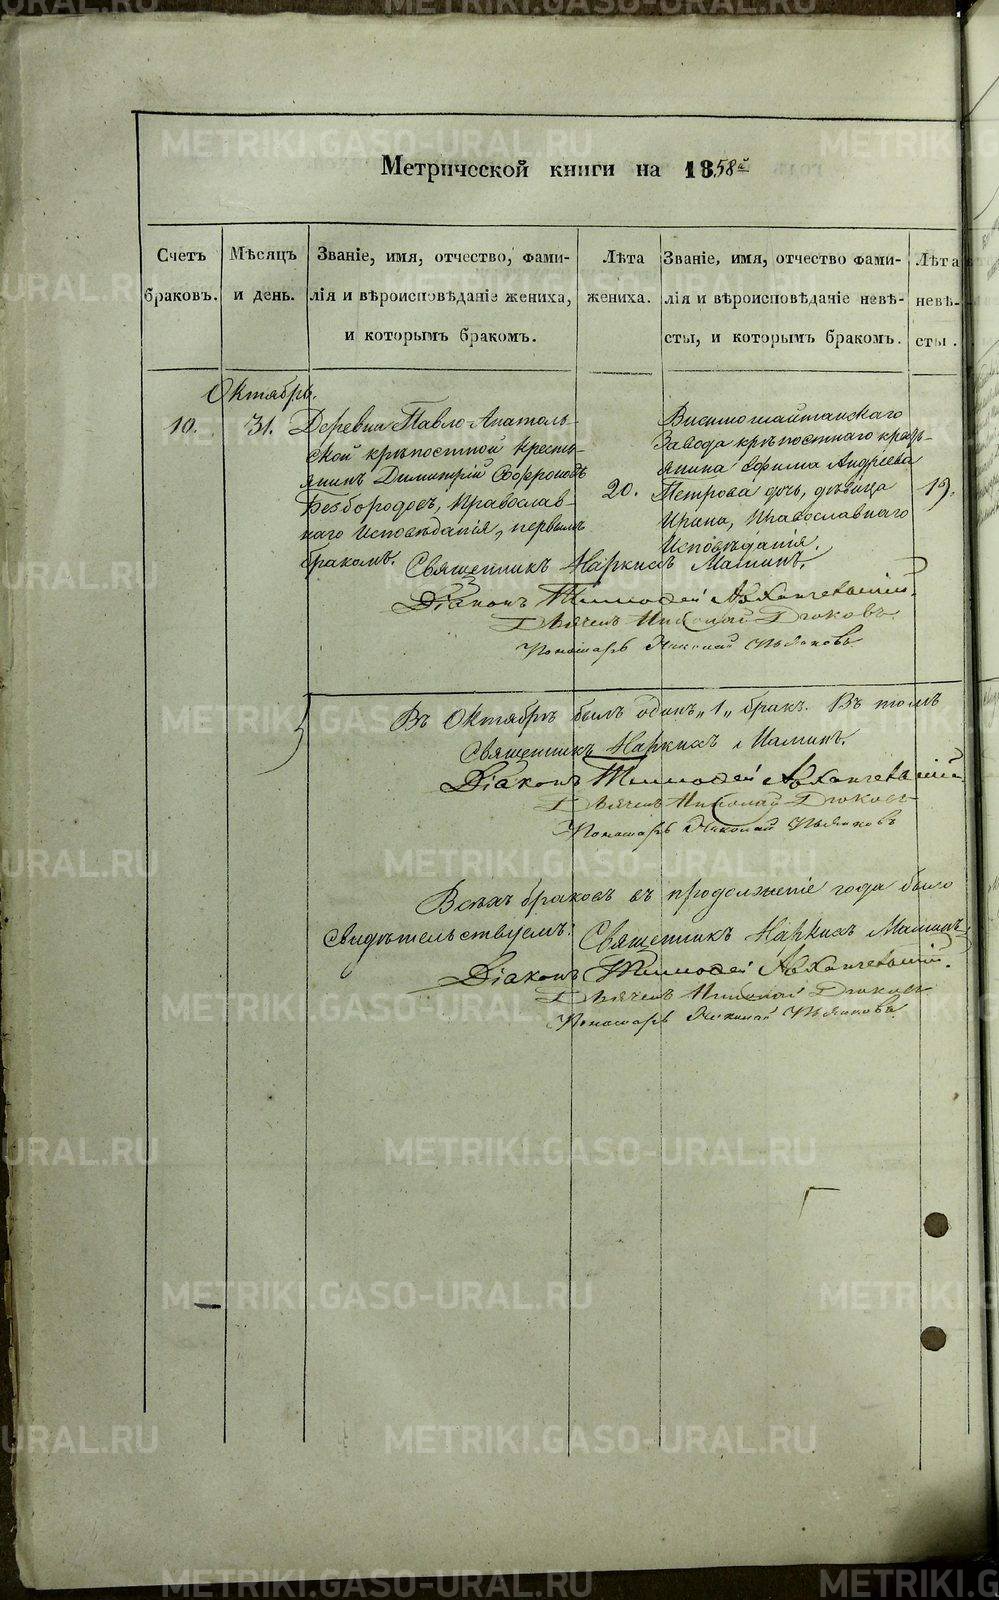 Метрической книги на 1858й
Счетъ браковъ.
Мѣсяцъ и день.
Званіе, имя, отчество, фами-
лія и вѣроисповѣданіе жениха,
и которымъ бракомъ.
Лѣта жениха.
Званіе, имя, отчество фами-
лія и вѣроисповѣданіе невѣ-
сты, и которымъ бракомъ.
Лѣта невѣ-
сты.
Октябрь.
10.
31.
Деревни Павло-Анатоль-
ской крѣпостной кресть-
янинъ Димитрій Софроновъ
Безбородовъ, Православ-
наго Исповѣданія, первымъ
бракомъ.
20.
Висимошайтанскаго
Завода крѣпостнаго кресть-
янина Ефима Андреева
Петрова дочь, дѣвица
Ирина, Православнаго
Исповѣданія.
19.
Священникъ Наркисъ Маминъ.
Діаконъ Тимофей Архангельскій.
Дьячекъ Николай Дюковъ
Пономарь Николай Пьянковъ
Въ Октябрѣ былъ одинъ „1„ бракъ. Въ томъ
Священникъ Наркисъ Маминъ.
Діаконъ Тимофей Архангельскій
Дьячекъ Николай Дюковъ
Пономарь Николай Пьянковъ
Всѣхъ браковъ въ продолженіе года было
свидѣтельствуемъ: Священникъ Наркисъ Маминъ
Діаконъ Тимофей Архангельскій.
Дьячекъ Николай Дюковъ
Пономарь Николай Пьянковъ
METRIKI.GASO-URAL.RU